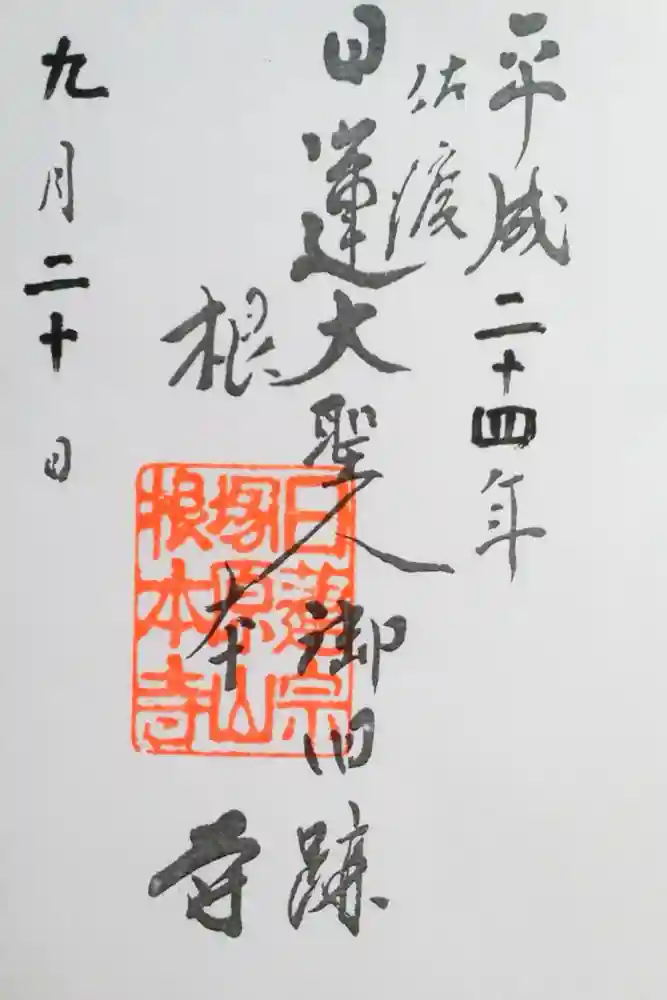 平成二十四年
佐渡
日蓮大聖人御旧跡
根本寺
九月二十日
日蓮宗
塚原山
根本寺